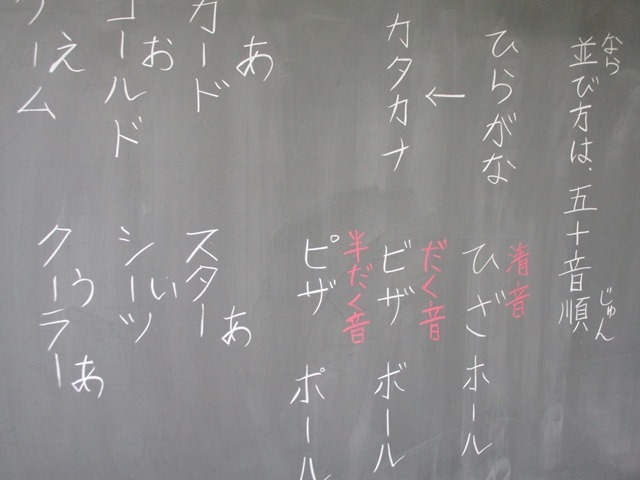 なら
並び方は、五十音順
じゅん
ひらがな
←
カタカナ
清音
ひざ ホール
だく音
ビザ ボール
半だく音
ピザ ポール
カード
あ
ゴールド
お
ゲーム
え
スター
あ
シーツ
い
クーラー
う
あ